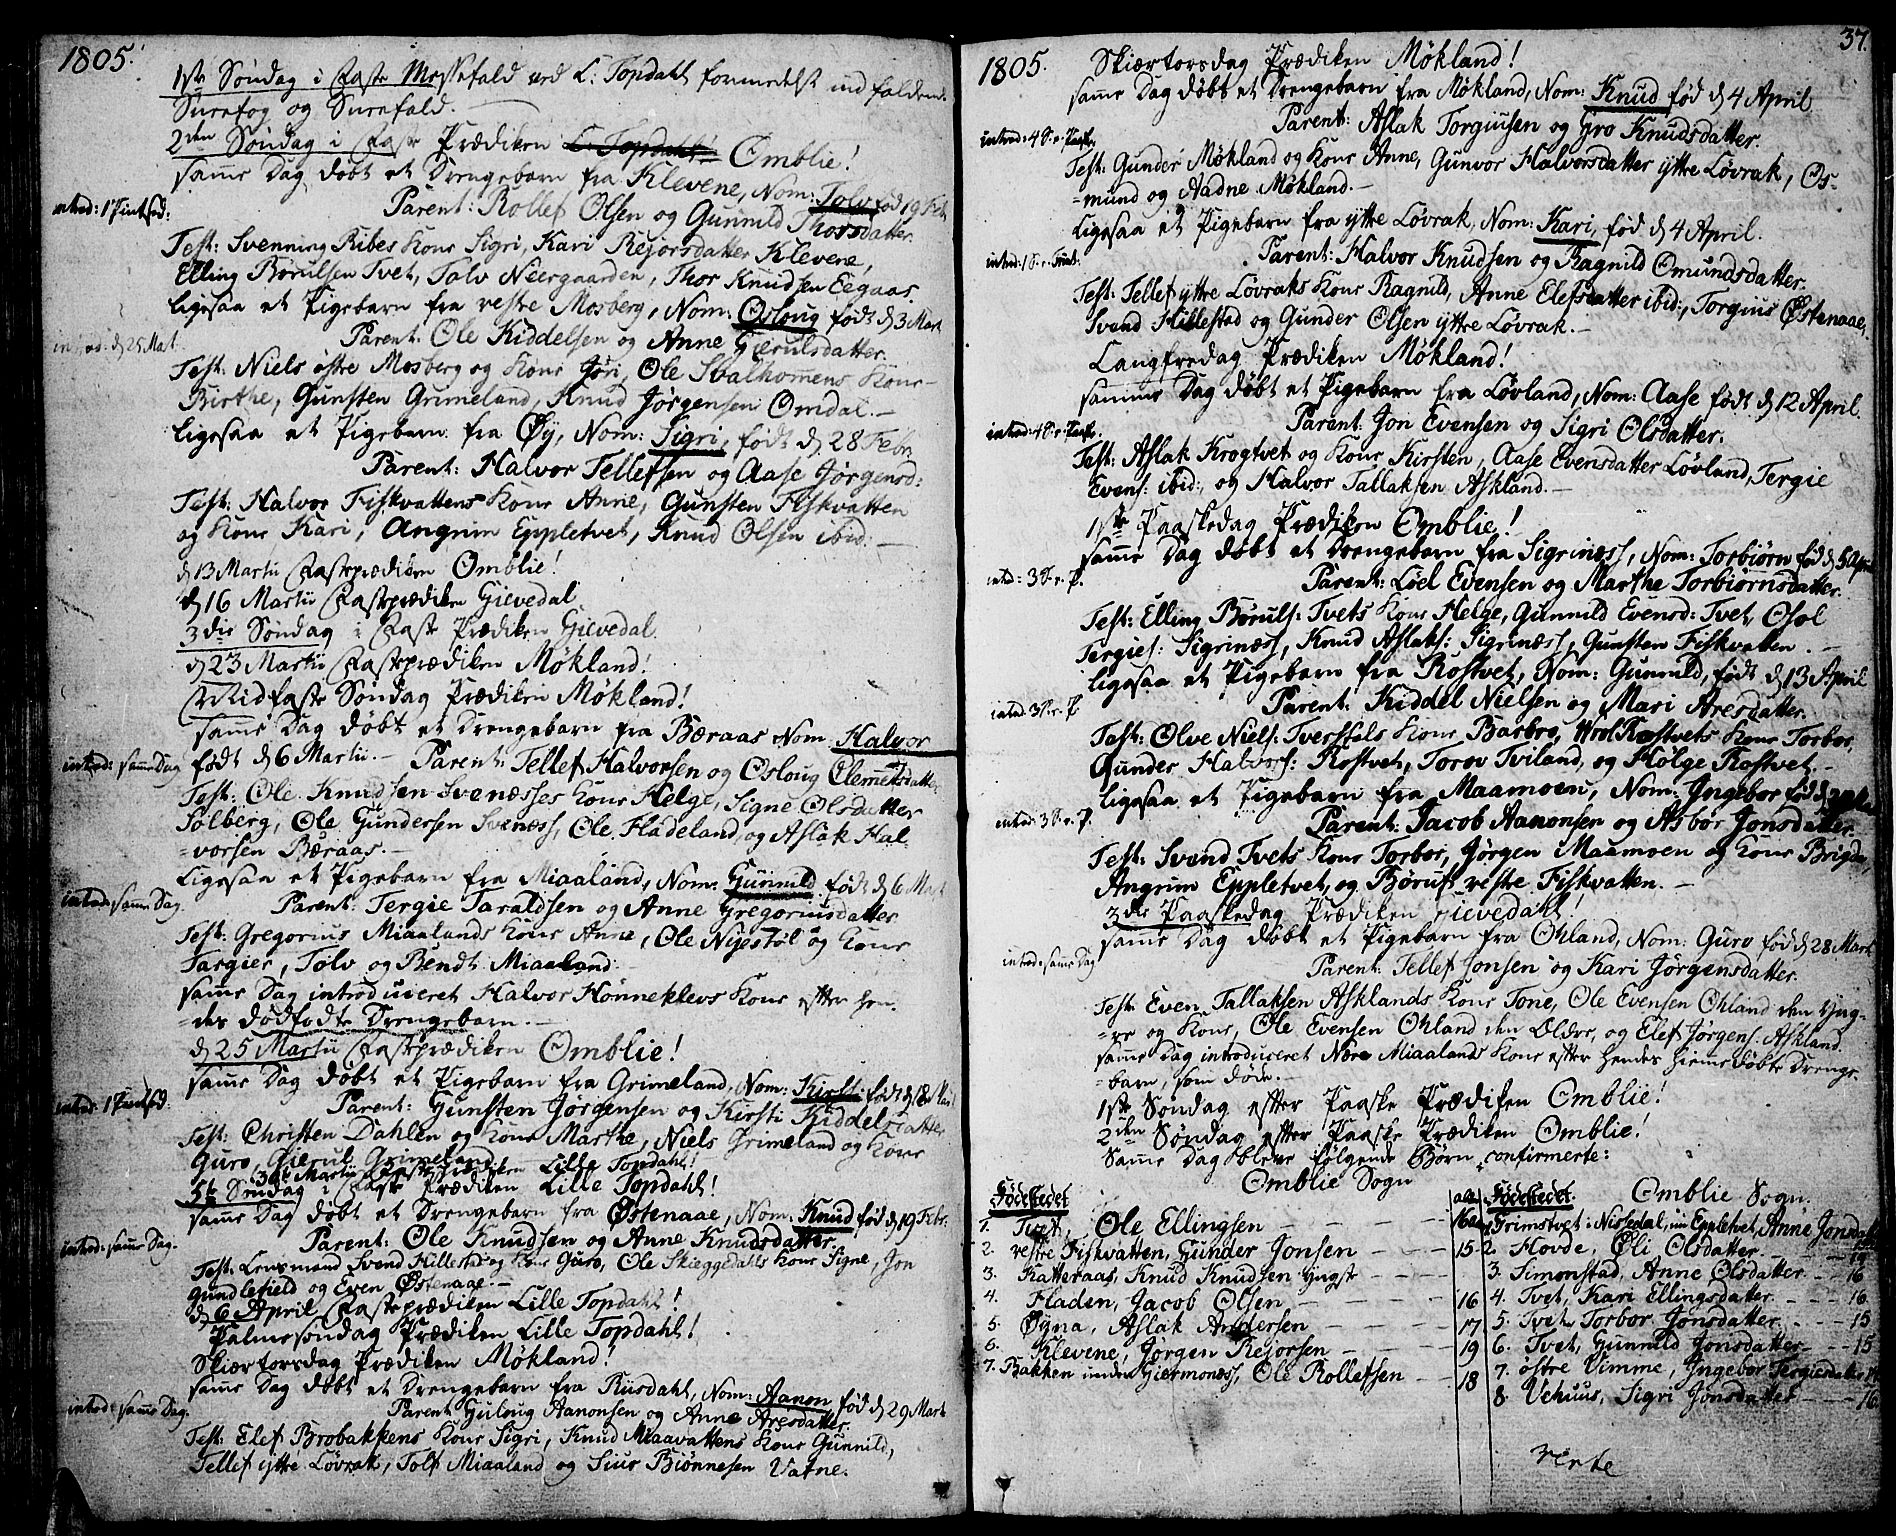 1805.
1ste Søndag i Faste Messefald ved L: Topdahl formedelst indfaldene
Snefog og Snefald.
2den Søndag i Faste Prædiken Omblie!
samme Dag døbt et Drengebarn fra Klevene, Nom: Tolv fød 19 Feb
introd: 1 Pintsed:
Parent: Rollef Olsen og Gunnild Thorsdatter.
Test: Svenning Ribes Kone Sigri, Kari Rejorsdatter Klevene,
Elling Børulsen Tvet, Tolv Neergaarden, Thor Knudsen Eegaas.
ligesaa et Pigebarn fra vestre Mosberg, Nom: Osloug født d 3 Mart
introd: d 25 Mart.
Parent: Ole Kiddelsen og Anne Gjerulsdatter.
Test: Niels østre Mosberg og Kone Jøri, Ole Svalhomens Kone
Birthe, Gunsten Grimeland, Knud Jørgensen Omdal.
ligesaa et Pigebarn fra Øy, Nom: Sigri, født d 28 Febr.
Parent: Halvor Tellefsen og Aase Jørgensd:
Test: Halvor Fiskvattens Kone Anne, Gunsten Fiskvatten
og Kone Kari, Angrim Eppletvet, Knud Olsen ibid:
d 13 Martii Fasteprædiken Omblie!
d 16 Martii Fasteprædiken Gievedal
3die Søndag i Faste Prædiken Gievedal.
d 23 Martii Fasteprædiken Møkland!
Midfaste Søndag Prædiken Møkland!
samme Dag døbt et Drengebarn fra Bæraas Nom. Halvor
introd: samme Dag
født d 6 Martii. Parent: Tellef Halvorsen og Osloug Clemmetsdatter
Test: Ole Knudsen Svenæsses Kone Helge, Signe Olsdatter
Solberg, Ole Gundersen Svenæss, Ole Fladeland, og Aslak Hal
=vorsen Bæraas.
ligesaa et Pigebarn fra Miaaland, Nom: Gunnild født d 6 Mart
introd: samme Dag.
Parent: Tergie Taraldsen og Anne Gregoriusdatter
Test: Gregorius Miaalands Kone Anne, Ole Nyestøl og Kone
Targier, Tolv og Bendt Miaaland.
samme Dag introduceret Halvor Hønneklevs Kone efter hen
=des dødfødte Drengebarn.
d 25 Martii Fasteprædiken Omblie!
samme Dag døbt et Pigebarn fra Grimeland, Nom: Kirsti født d 18 Mart
introd: 1 Pintsed:
Parent: Gunsten Jørgensen og Kirsti Kiddelsdatter
Test: Christen Dahlen og Kone Marthe, Niels Grimeland og Kone
Guro, Gierul Grimeland
30te Martii Fasteprædiken Lille Topdahl!
5te Søndag i Faste Prædiken Lille Topdahl!
samme Dag døbt et Drengebarn fra Østenaae, Nom: Knud fød d 19 Febr.
introd: samme Dag.
Parent: Ole Knudsen og Anne Knudsdatter
Test: Lensmand Svend Hillestad og Kone Guro, Ole Skieggedahls Kone Signe, Jon
Gundlefield og Even Østenaae.
d 6 April Fasteprædiken Lille Topdahl!
Palmesøndag Prædiken Lille Topdahl!
Skiærtorsdag Prædiken Møkland!
samme Dag døbt et Drengebarn fra Riisdahl, Nom: Aanon fød d 29 Mart
introd: samme Dag.
Parent Guloug Aanonsen og Anne Aresdatter
Test: Elef Brobakkens Kone Sigri, Knud Miaavattens Kone Gunnild,
Tellef yttre Løvrak, Tolf Miaaland og Siur Biønnesen Vatne.
37.
1805.
Skiærtorsdag Prædiken Møkland!
samme Dag døbt et Drengebarn fra Møkland, Nom: Knud fød d 4 April
introd: 4 S. e. Paaske
Parent: Aslak Torgiusen og Gro Knudsdatter.
Test: Gunder Møkland og Kone Anne, Gunvor Halvorsdatter yttre Løvrak, Os=
=mund og Aadne Møkland.
ligesaa et Pigebarn fra yttre Løvrak, Nom: Kari, fød d 4 April.
introd: 1 S. e. Trint.
Parent: Halvor Knudsen og Ragnild Omundsdatter.
Test: Tellef yttre Løvraks Kone Ragnild, Anne Elefsdatter ibid:, Torgius Østenaae,
Svend Hillestad og Gunder Olsen yttre Løvrak.
Langfredag Prædiken Møkland!
samme Dag døbt et Pigebarn fra Løvland, Nom: Aase født d 12 April.
introd: 4 S. e. Paaske.
Parent: Jon Evensen og Sigri Olsdatter.
Test: Aslak Krogtvet og Kone Kirsten, Aase Evensdatter Løvland, Tergie
Evens: ibid:, og Halvor Tallaksen Askland.
1ste Paaskedag Prædiken Omblie!
samme Dag døbt et Drengebarn fra Sigrinæss, Nom: Torbiørn fød d 5 April
introd: 3 S. e. P.
Parent: Løel Evensen og Marthe Torbiørnsdatter.
Test: Elling Børuls: Tvets Kone Helge, Gunnild Evensd: Tvet, Osol
Tergies: Sigrinæss, Knud Aslaks: Sigrinæss, Gunsten Fiskvatten.
ligesaa et Pigebarn fra Rostvet, Nom: Gunnild, født d 13 April
introd: 3 S. e. P
Parent: Kiddel Nielsen og Mari Aresdatter.
Test: Olve Niels: Tverstøls Kone Barbro, Rostvets Kone Torbor,
Gunder Halvors: Rostvet, Torov Tviland, og Hølge Rostvet.
ligesaa et Pigebarn fra Maamoen, Nom: Ingebor fød d
introd: 3 S. e. P.
Parent: Jacob Aanonsen og Asbor Jonsdatter.
Test: Svend Tvets Kone Torbor, Jørgen Maamoen og Kone Brigde,
Angrim Eppletvet, og Børuf vestre Fiskvatten.
3die Paaskedag Prædiken Gievedahl!
samme Dag døbt et Pigebarn fra Ohland, Nom: Guro fød d 28 Mart
introd: samme Dag
Parent: Tellef Jonsen og Kari Jørgensdatter.
Test: Even Tallaksen Asklands Kone Tone, Ole Evensen Ohland den Yng=
=re og Kone, Ole Evensen Ohland den Ældre, og Elef Jørgens: Askland.
samme Dag introduceret Nære Miaalands Kone efter hendes hiemmedøbte Drenge=
=barn, som døde.
1ste Søndag efter Paaske Prædiken Omblie!
2den Søndag efter Paaske Prædiken Omblie!
Samme Dag bleve følgende Børn confirmerte:
Omblie Sogn
Fødestedet
1. Tvet, Ole Ellingsen 16
2. vestre Fiskvatten, Gunder Jonsen 15
3. Katteraas, Knud Knudsen yngst
4. Fladen, Jacob Olsen 16
5. Øyna, Aslak Andersen 17
6. Klevene, Jørgen Rejorsen 19
7. Bakken under Giermonæss, Ole Rollefsen 18
Fødestedet. Omblie Sogn.
1. Grimstvet i Nissedal, nu Eppletvet, Anne Jonsdat
2. Hovde, Øli Olsdatter 19
3. Simonstad, Anne Olsdatter 16
4. Tvet, Kari Ellingsdatter 16
5. Tvet, Torbor Jonsdatter 15
6. Tvet, Gunnild Jonsdatter 15
7. østre Vimme, Ingebor Tergiesdatter
8 Vehuus, Sigri Jonsdatter 16
verte